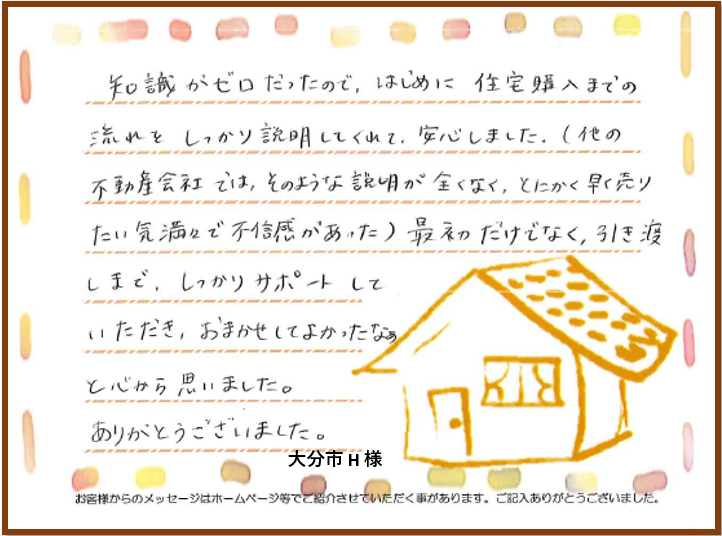 知識がゼロだったので、はじめに 住宅購入までの
流れを しっかり説明してくれて、安心しました。(他の
不動産会社では、そのような説明が全くなく、とにかく早く売り
たい気満々で不信感があった)最初だけでなく、引き渡
しまで、しっかりサポートして
いただき、おまかせしてよかったなぁ
と心から思いました。
ありがとうございました。
大分市 H 様
お客様からのメッセージはホームページ等でご紹介させていただく事があります。ご記入ありがとうございました。